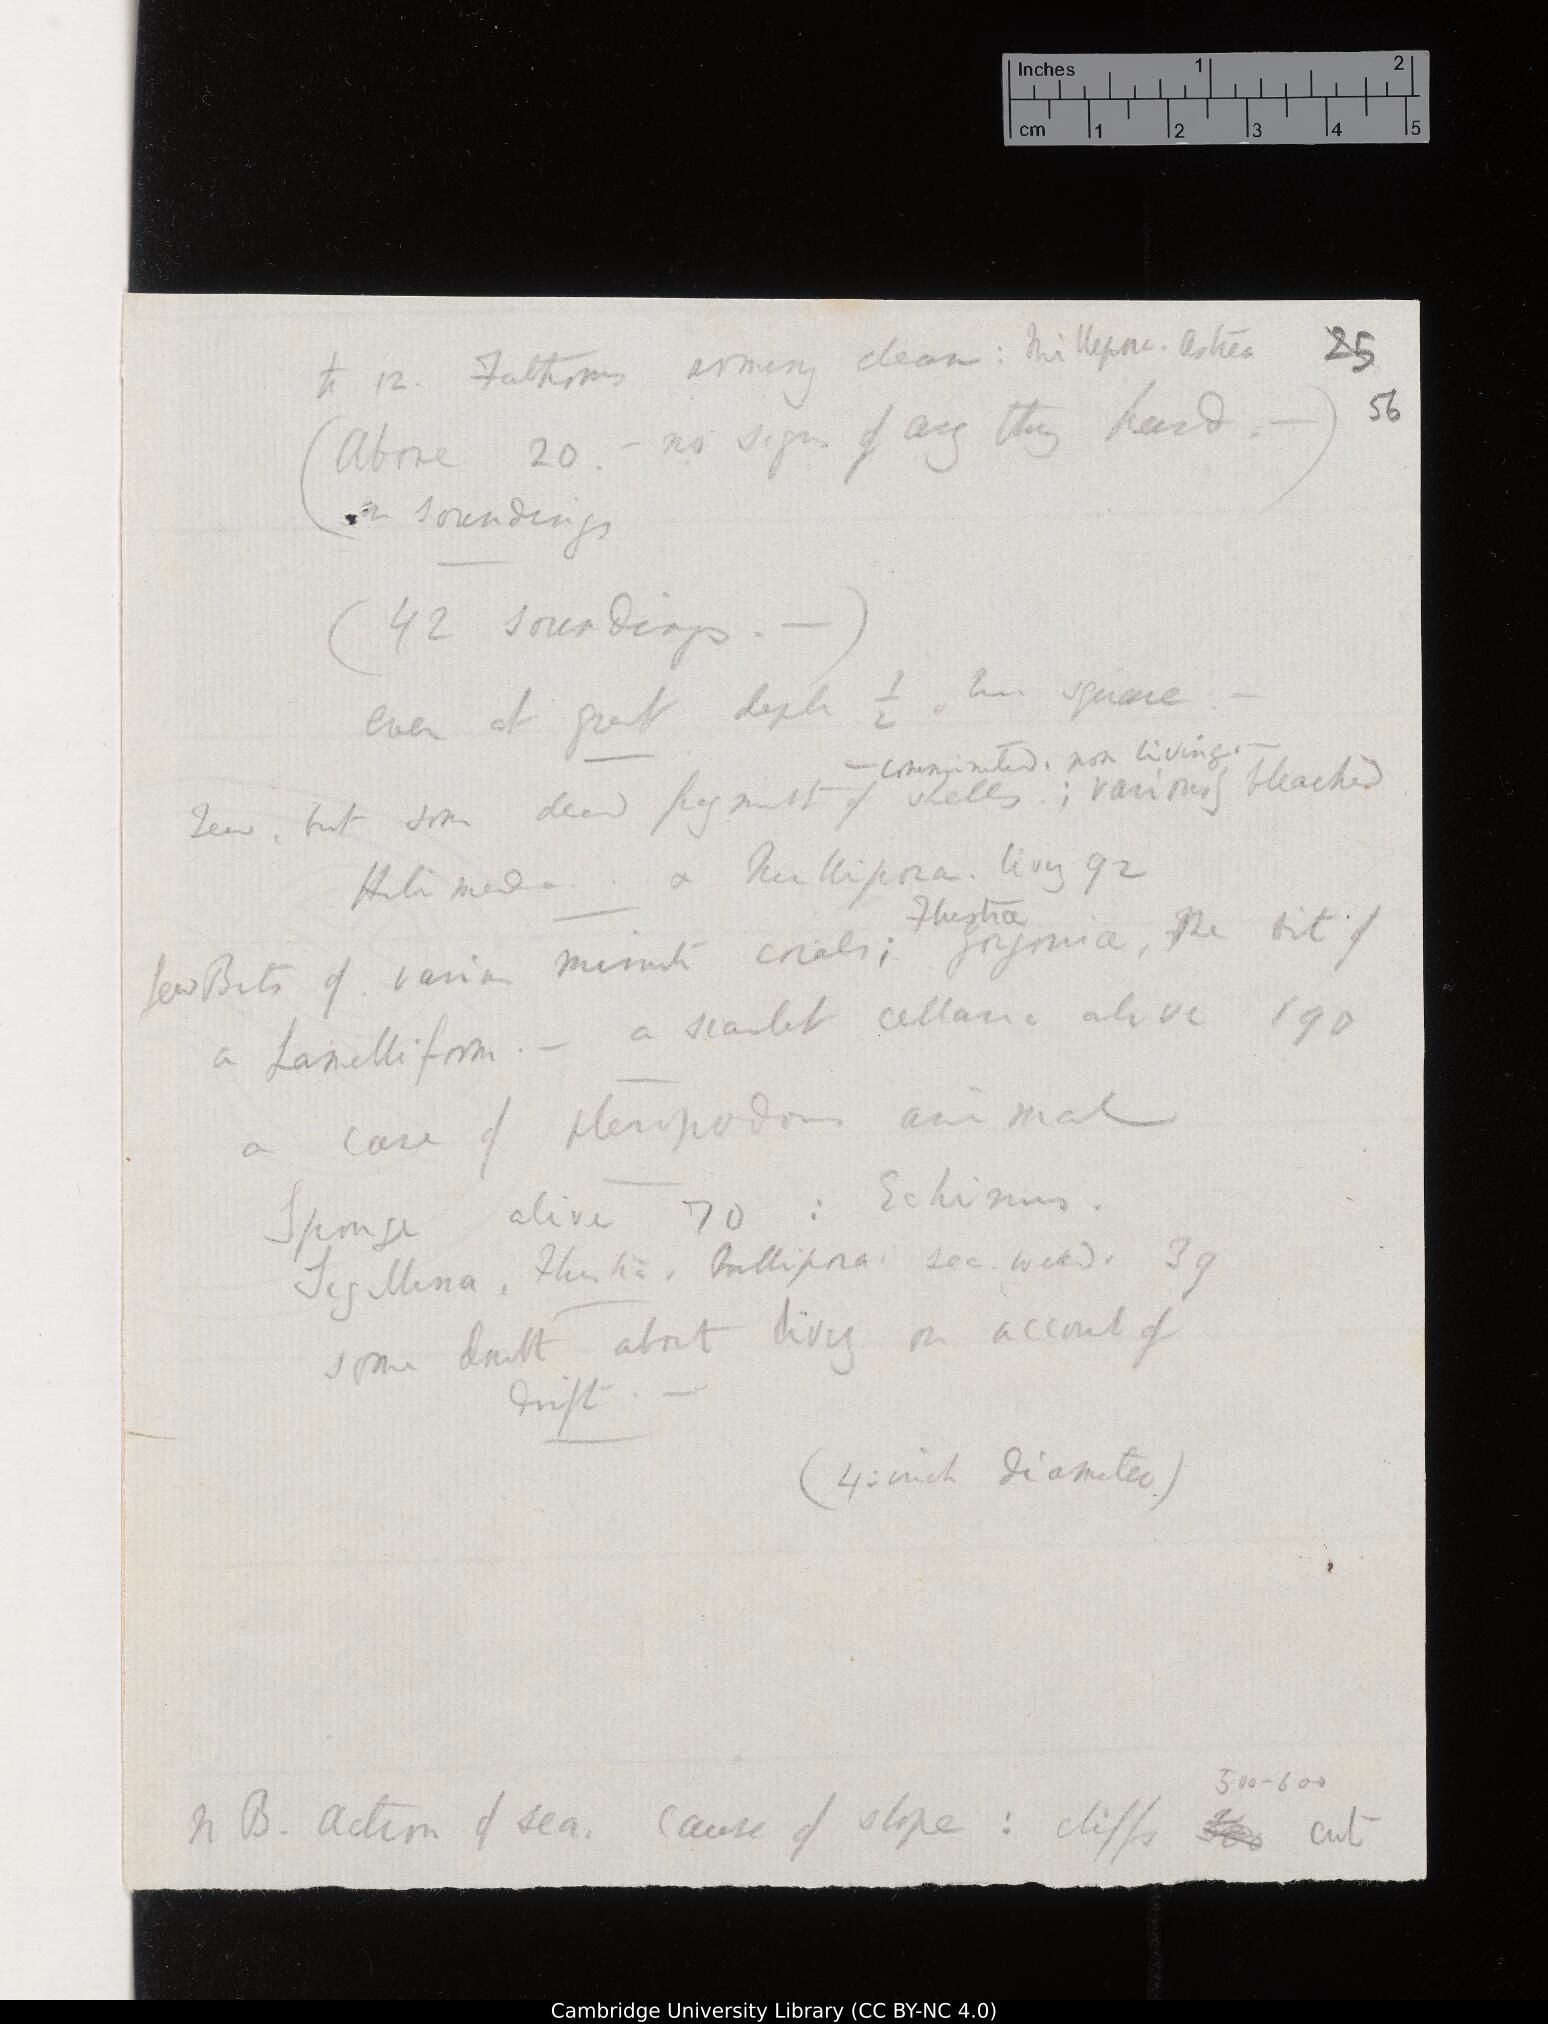 Inches 1 2
cm 1 2 3 4 5
to 12. Fathoms arming clean: Millepora. Astrea
25
56
(Above 20. — no sign of any thing hard. —)
soundings
(42 soundings. —)
even at great depth 1/2 square —
— comminuted. non living. —
few, but some dead fragments of shells.; various bleached
Halimeda. a Nullipora. living 92
Flustra
few Bits of various minute corals; gorgonia, the bit of
a Lamelliform. — a scarlet cellaria alive 190
a case of pteropodous animal
Sponge alive 70 : Echinus.
Flustra, Nullipora. sea weed. 39
some doubt about living on account of
drift. —
(4: inch diameter)
500-600
N B. Action of sea. Cause of slope : cliffs cut
Cambridge University Library (CC BY-NC 4.0)